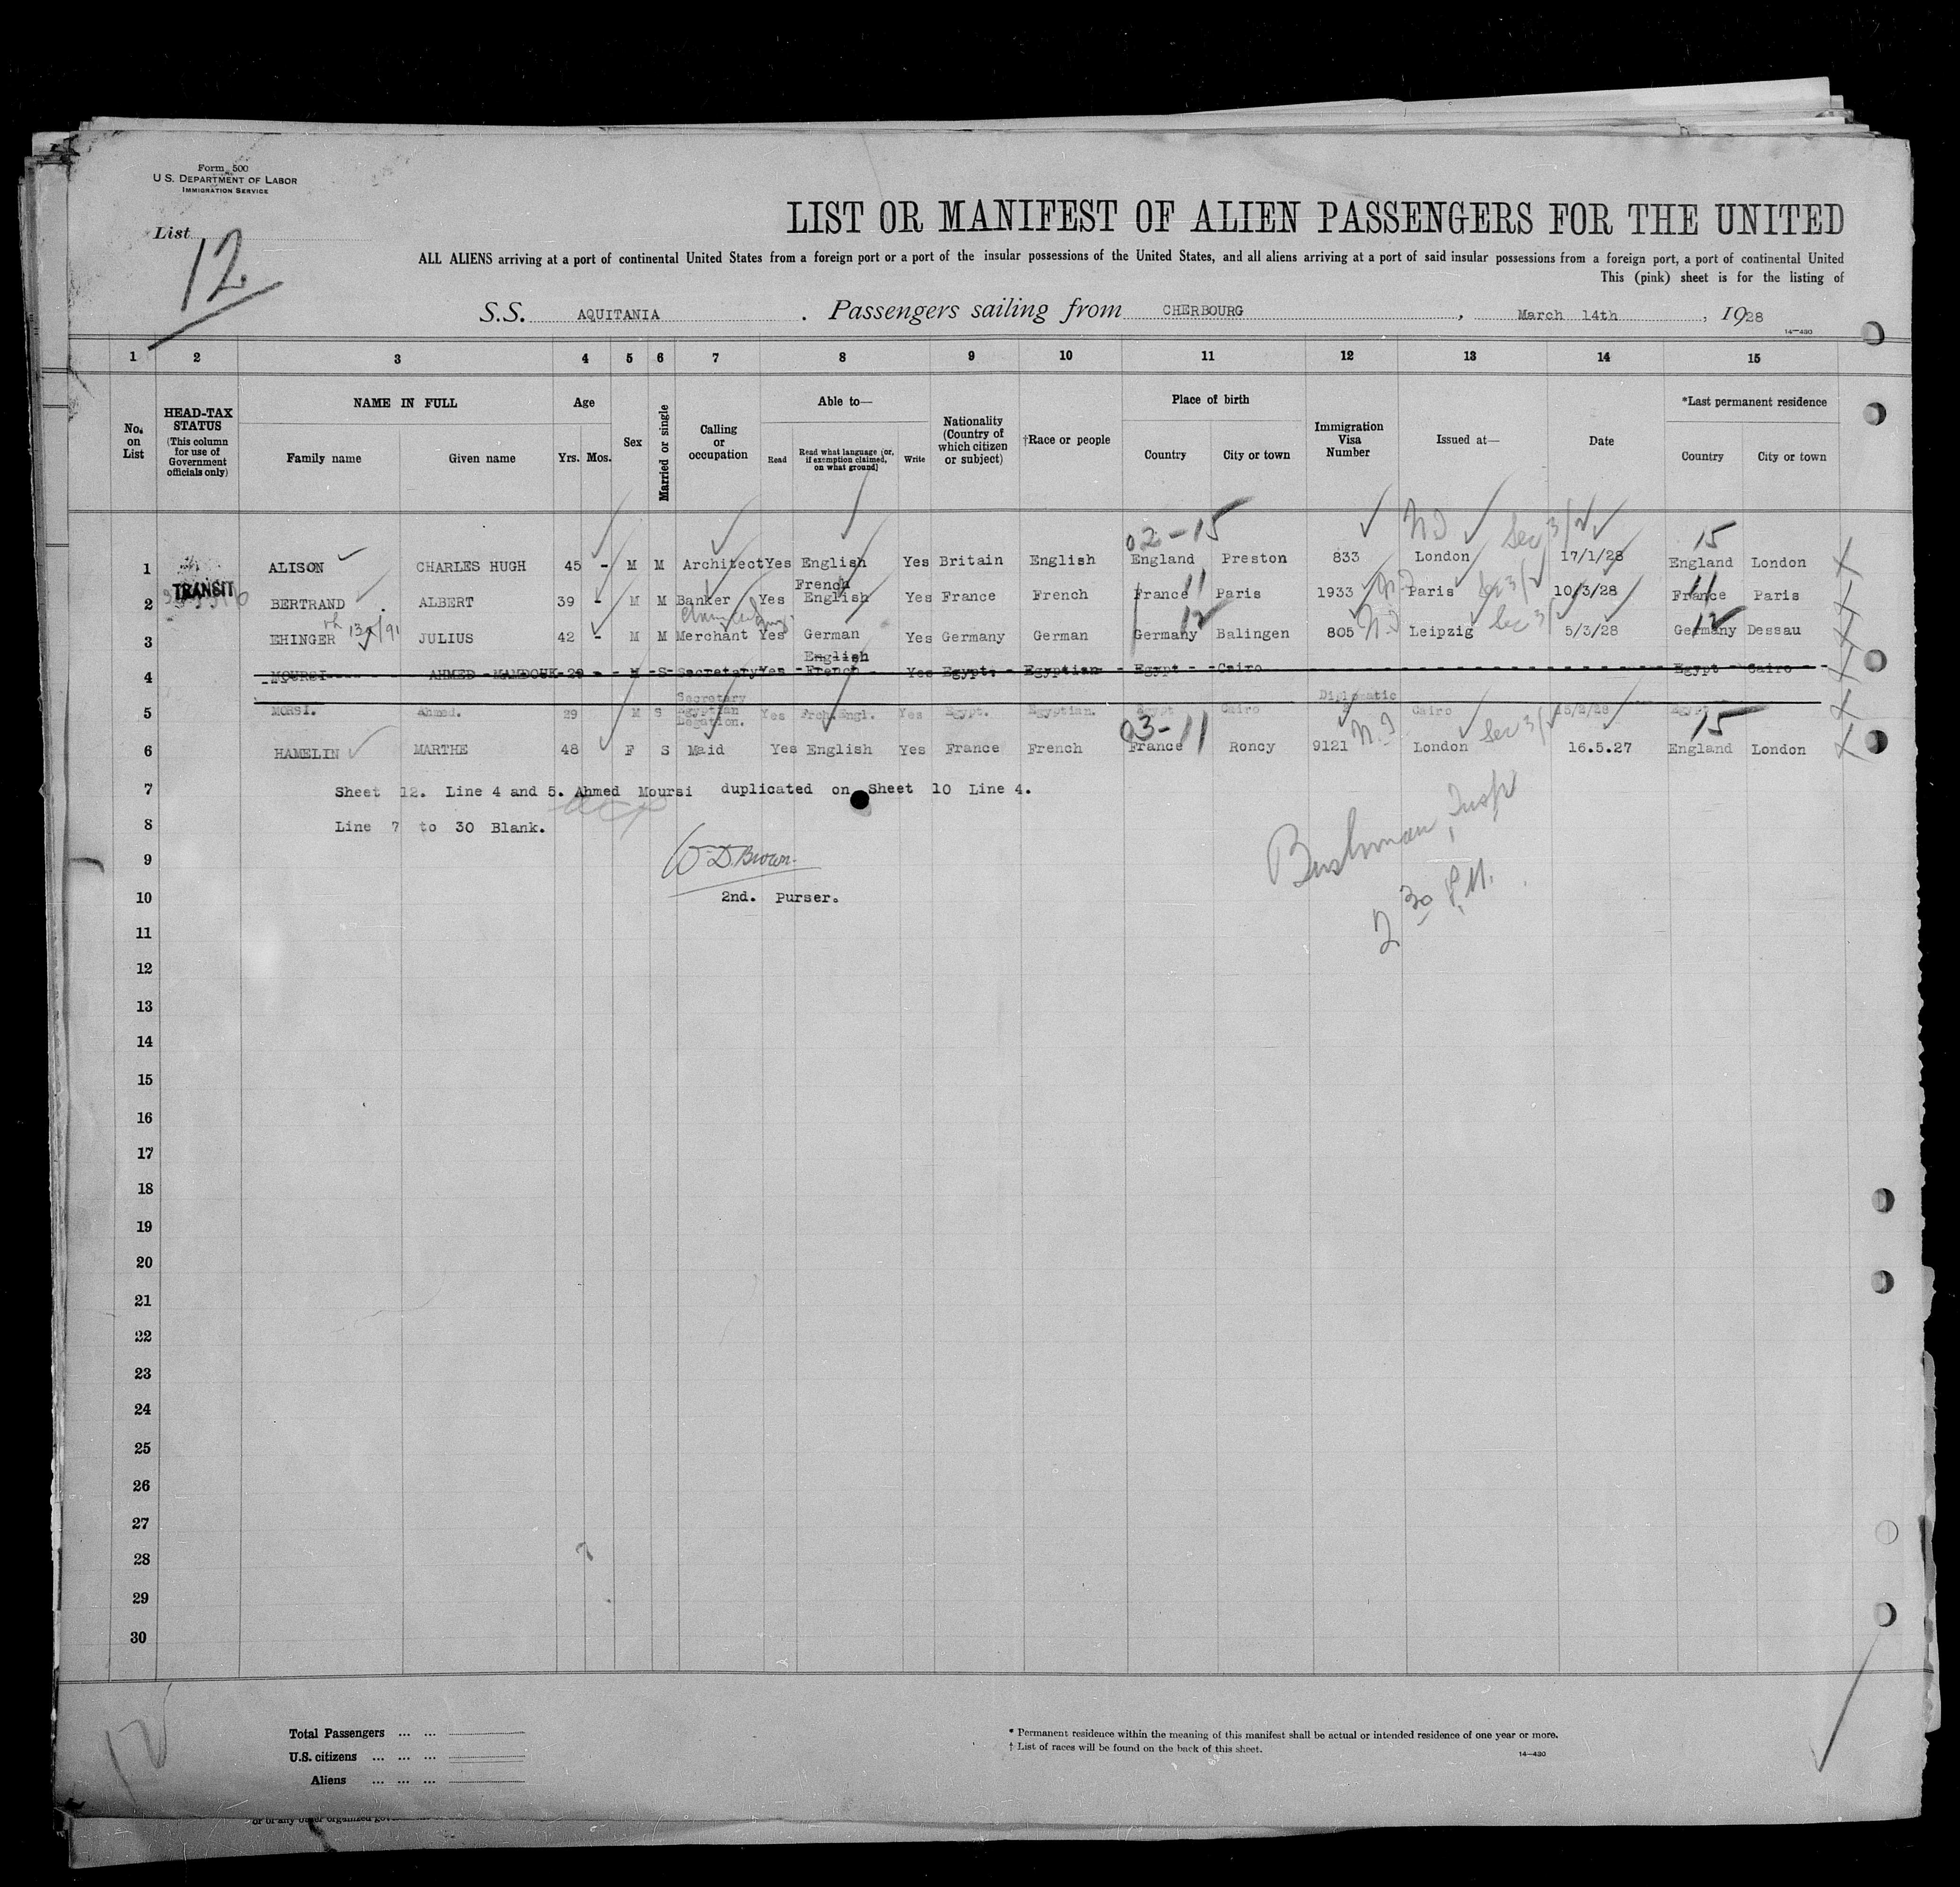 Form 500
U.S. DEPARTMENT OF LABOR
IMMIGRATION SERVICE
LIST OR MANIFEST OF ALIEN PASSENGERS FOR THE UNITED
List
12
ALL ALIENS arriving at a port of continental United States from a foreign port or a port of the insular possessions of the United States, and all aliens arriving at a port of said insular possessions from a foreign port, a port of continental United
This (pink) sheet is for the listing of
S.S. AQUITANIA . Passengers sailing from CHERBOURG , March 14th , 1928
14—430
1 2 3 4 5 6 7 8 9 10 11 12 13 14 15
No. on List
HEAD-TAX STATUS (This column for use of Government officials only)
NAME IN FULL
Family name Given name
Age
Yrs. Mos.
Sex
Married or single
Calling or occupation
Able to—
Read Read what language (or, if exemption claimed, on what ground) Write
Nationality (Country of which citizen or subject)
†Race or people
Place of birth
Country City or town
Immigration Visa Number
Issued at—
Date
*Last permanent residence
Country City or town
02-15 N.I Sec 3/2 15
1 ALISON CHARLES HUGH 45 - M M Architect Yes English Yes Britain English England Preston 833 London 17/1/28 England London
TRANSIT
2 BERTRAND . ALBERT 39 - M M Banker Yes French English Yes France French France 11 Paris 1933 N.I Paris Sec 3/2 10/3/28 France 11 Paris
3 EHINGER JULIUS 42 - M M Merchant Yes German Yes Germany German Germany 12 Balingen 805 N.I Leipzig Sec 3/2 5/3/28 Germany 12 Dessau
4 MOURSI AHMED MAMDOUH 29 - M S Secretary Yes English French Yes Egypt. Egyptian Egypt Cairo Egypt Cairo
5 MORSI. Ahmed. 29 M S Secretary Egyptian Legation. Yes Frch.Engl. Yes Egypt. Egyptian. Egypt Cairo Diplomatic Cairo 15/2/28 Egypt
03-11 N.I Sec 3/2 15
6 HAMELIN MARTHE 48 F S Maid Yes English Yes France French France Roncy 9121 London 16.5.27 England London
7 Sheet 12. Line 4 and 5. Ahmed Moursi duplicated on Sheet 10 Line 4.
8 Line 7 to 30 Blank.
9 W D. Brown.
10 2nd. Purser.
Bushman, Insp
2 30 P.M.
11
12
13
14
15
16
17
18
19
20
21
22
23
24
25
26
27
28
29
30
12
Total Passengers ... ...
U.S. citizens ... ... ...
Aliens ... ... ...
* Permanent residence within the meaning of this manifest shall be actual or intended residence of one year or more.
† List of races will be found on the back of this sheet.
14—430